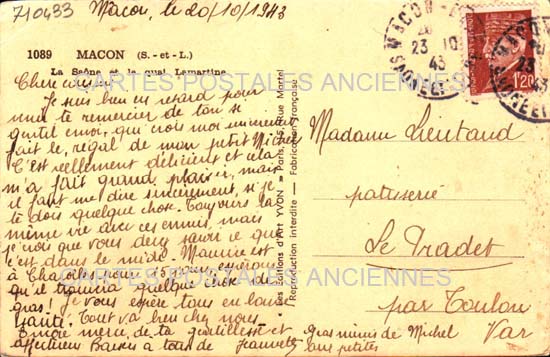 710483
Macon, le 20/10/1943
1089 MACON (S.-et-L.)
La Saône et le quai Lamartine
CARTES POSTALES ANCIENNES
Chère
Je suis bien en retard pour
te remercier de ton si
gentil envoi, qui crois moi
fait le régal de mon petit Michel
C'est réellement délicieux et cela
m'a fait grand plaisir, mais
il faut me dire sincèrement, si je
te dois quelque chose. Toujours la
même vie avec ces ennuis, mais
je crois que vous devez savoir ce que
c'est dans le midi. Maurice est
à Charolles pour 15 jours
qu'il quelque chose de
gras! Je vous espère tous en bonne
santé. Tout va bien chez nous
Encore merci, de ta gentillesse et
affectueux Baisers à tous de
gros mimis de Michel
aux petites
Les Editions d'Art YVON - Paris, 15, rue Martel
Reproduction interdite - Fabrication Française
Madame Lieutaud
patisserie
Le Pradet
par Toulon
Var
MACON
23 10
43
SAONE ET
1F20
MACON
23
43
SAONE ET
CARTES POSTALES ANCIENNES